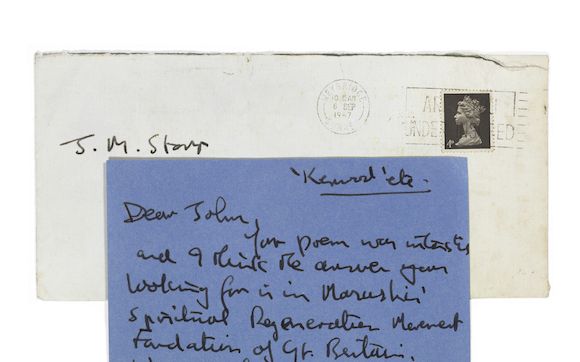 WEYBRIDGE
6 SEP
1967
J. M. Starr
'Kenwood' etc.
Dear John,
Your poem was interesting
and I think the answer your
looking for is in Maharishi'
Spiritual Regeneration Movement
Foundation of Gt. Britain.